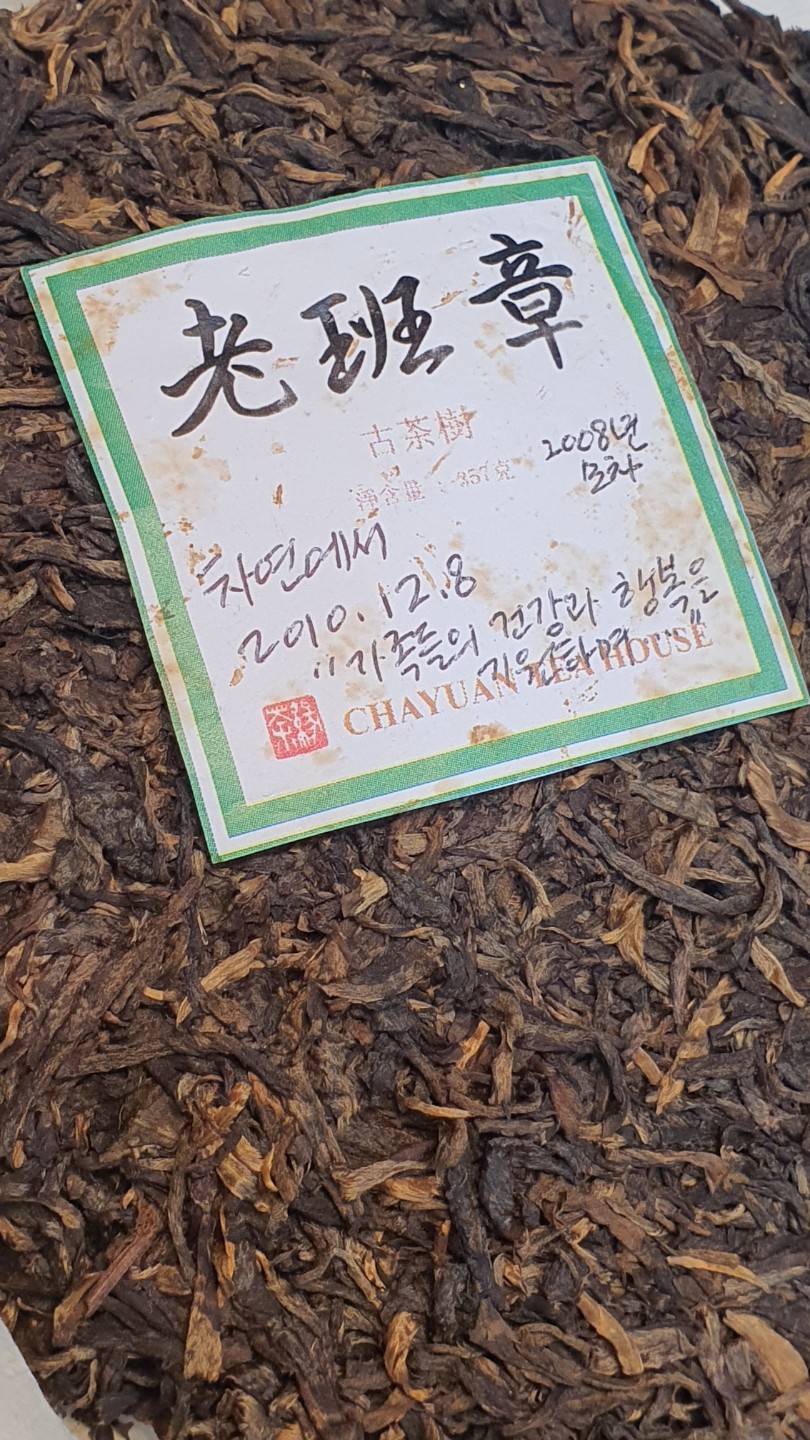 老班章
古茶樹
净含量：357克
2008년
모차
차연에서
2010.12.8
"가족들의 건강과 행복을
기원하며..."
茶缘
CHAYUAN TEA HOUSE